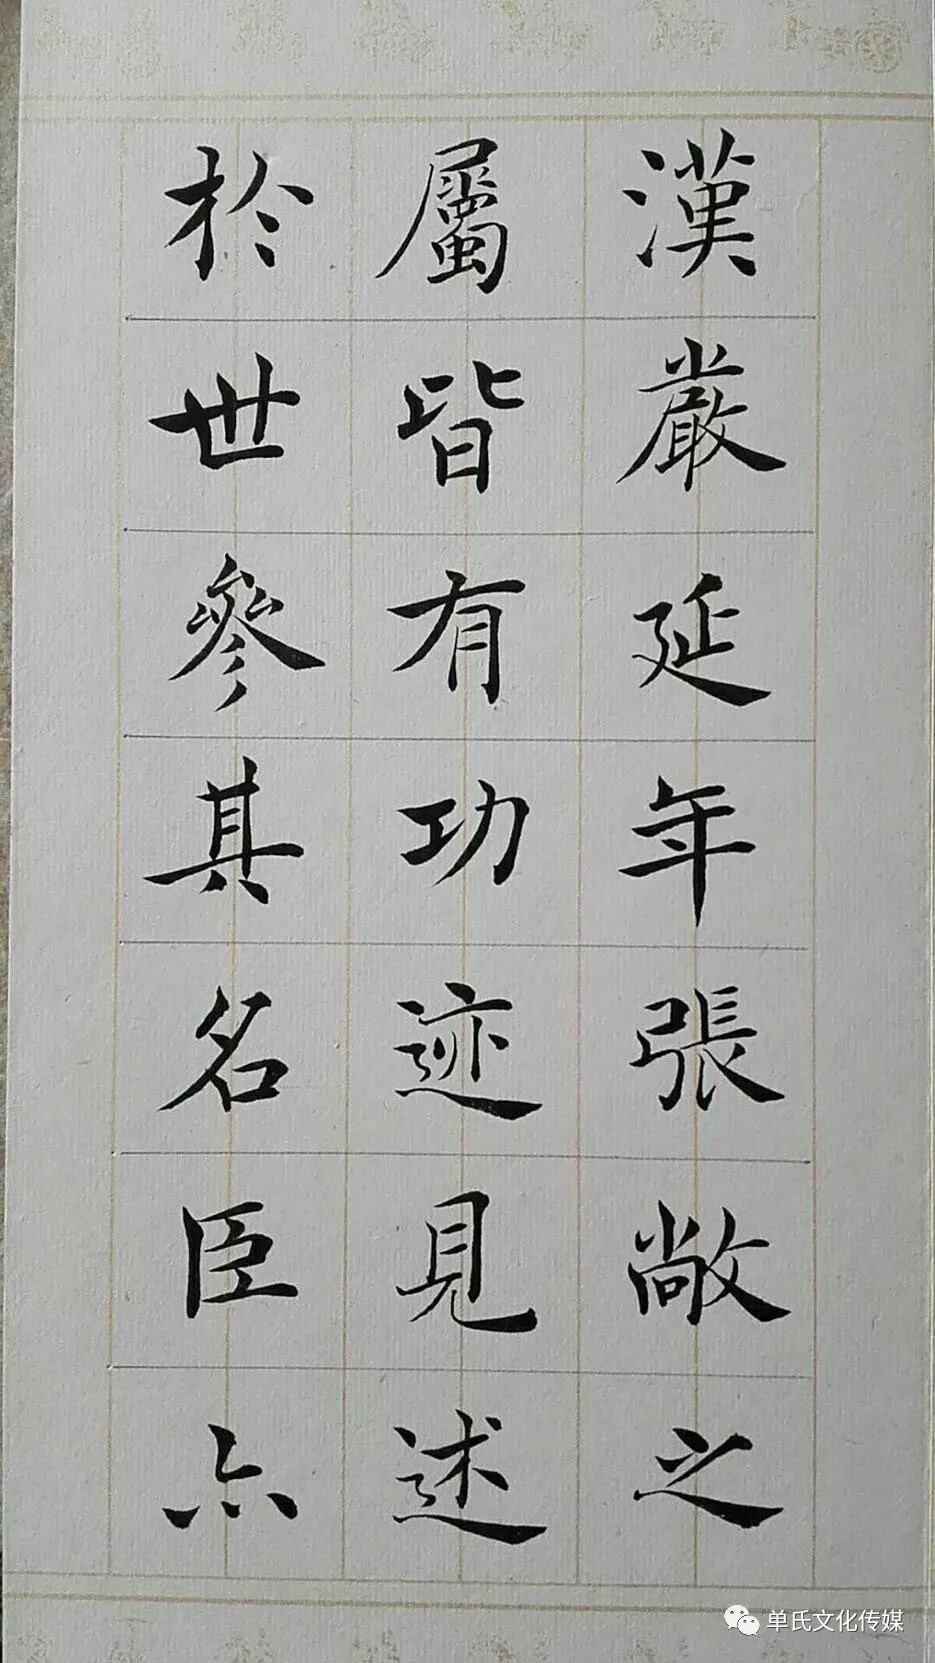 漢嚴延年張敞之
屬皆有功迹見述
於世參其名臣亦
单氏文化传媒